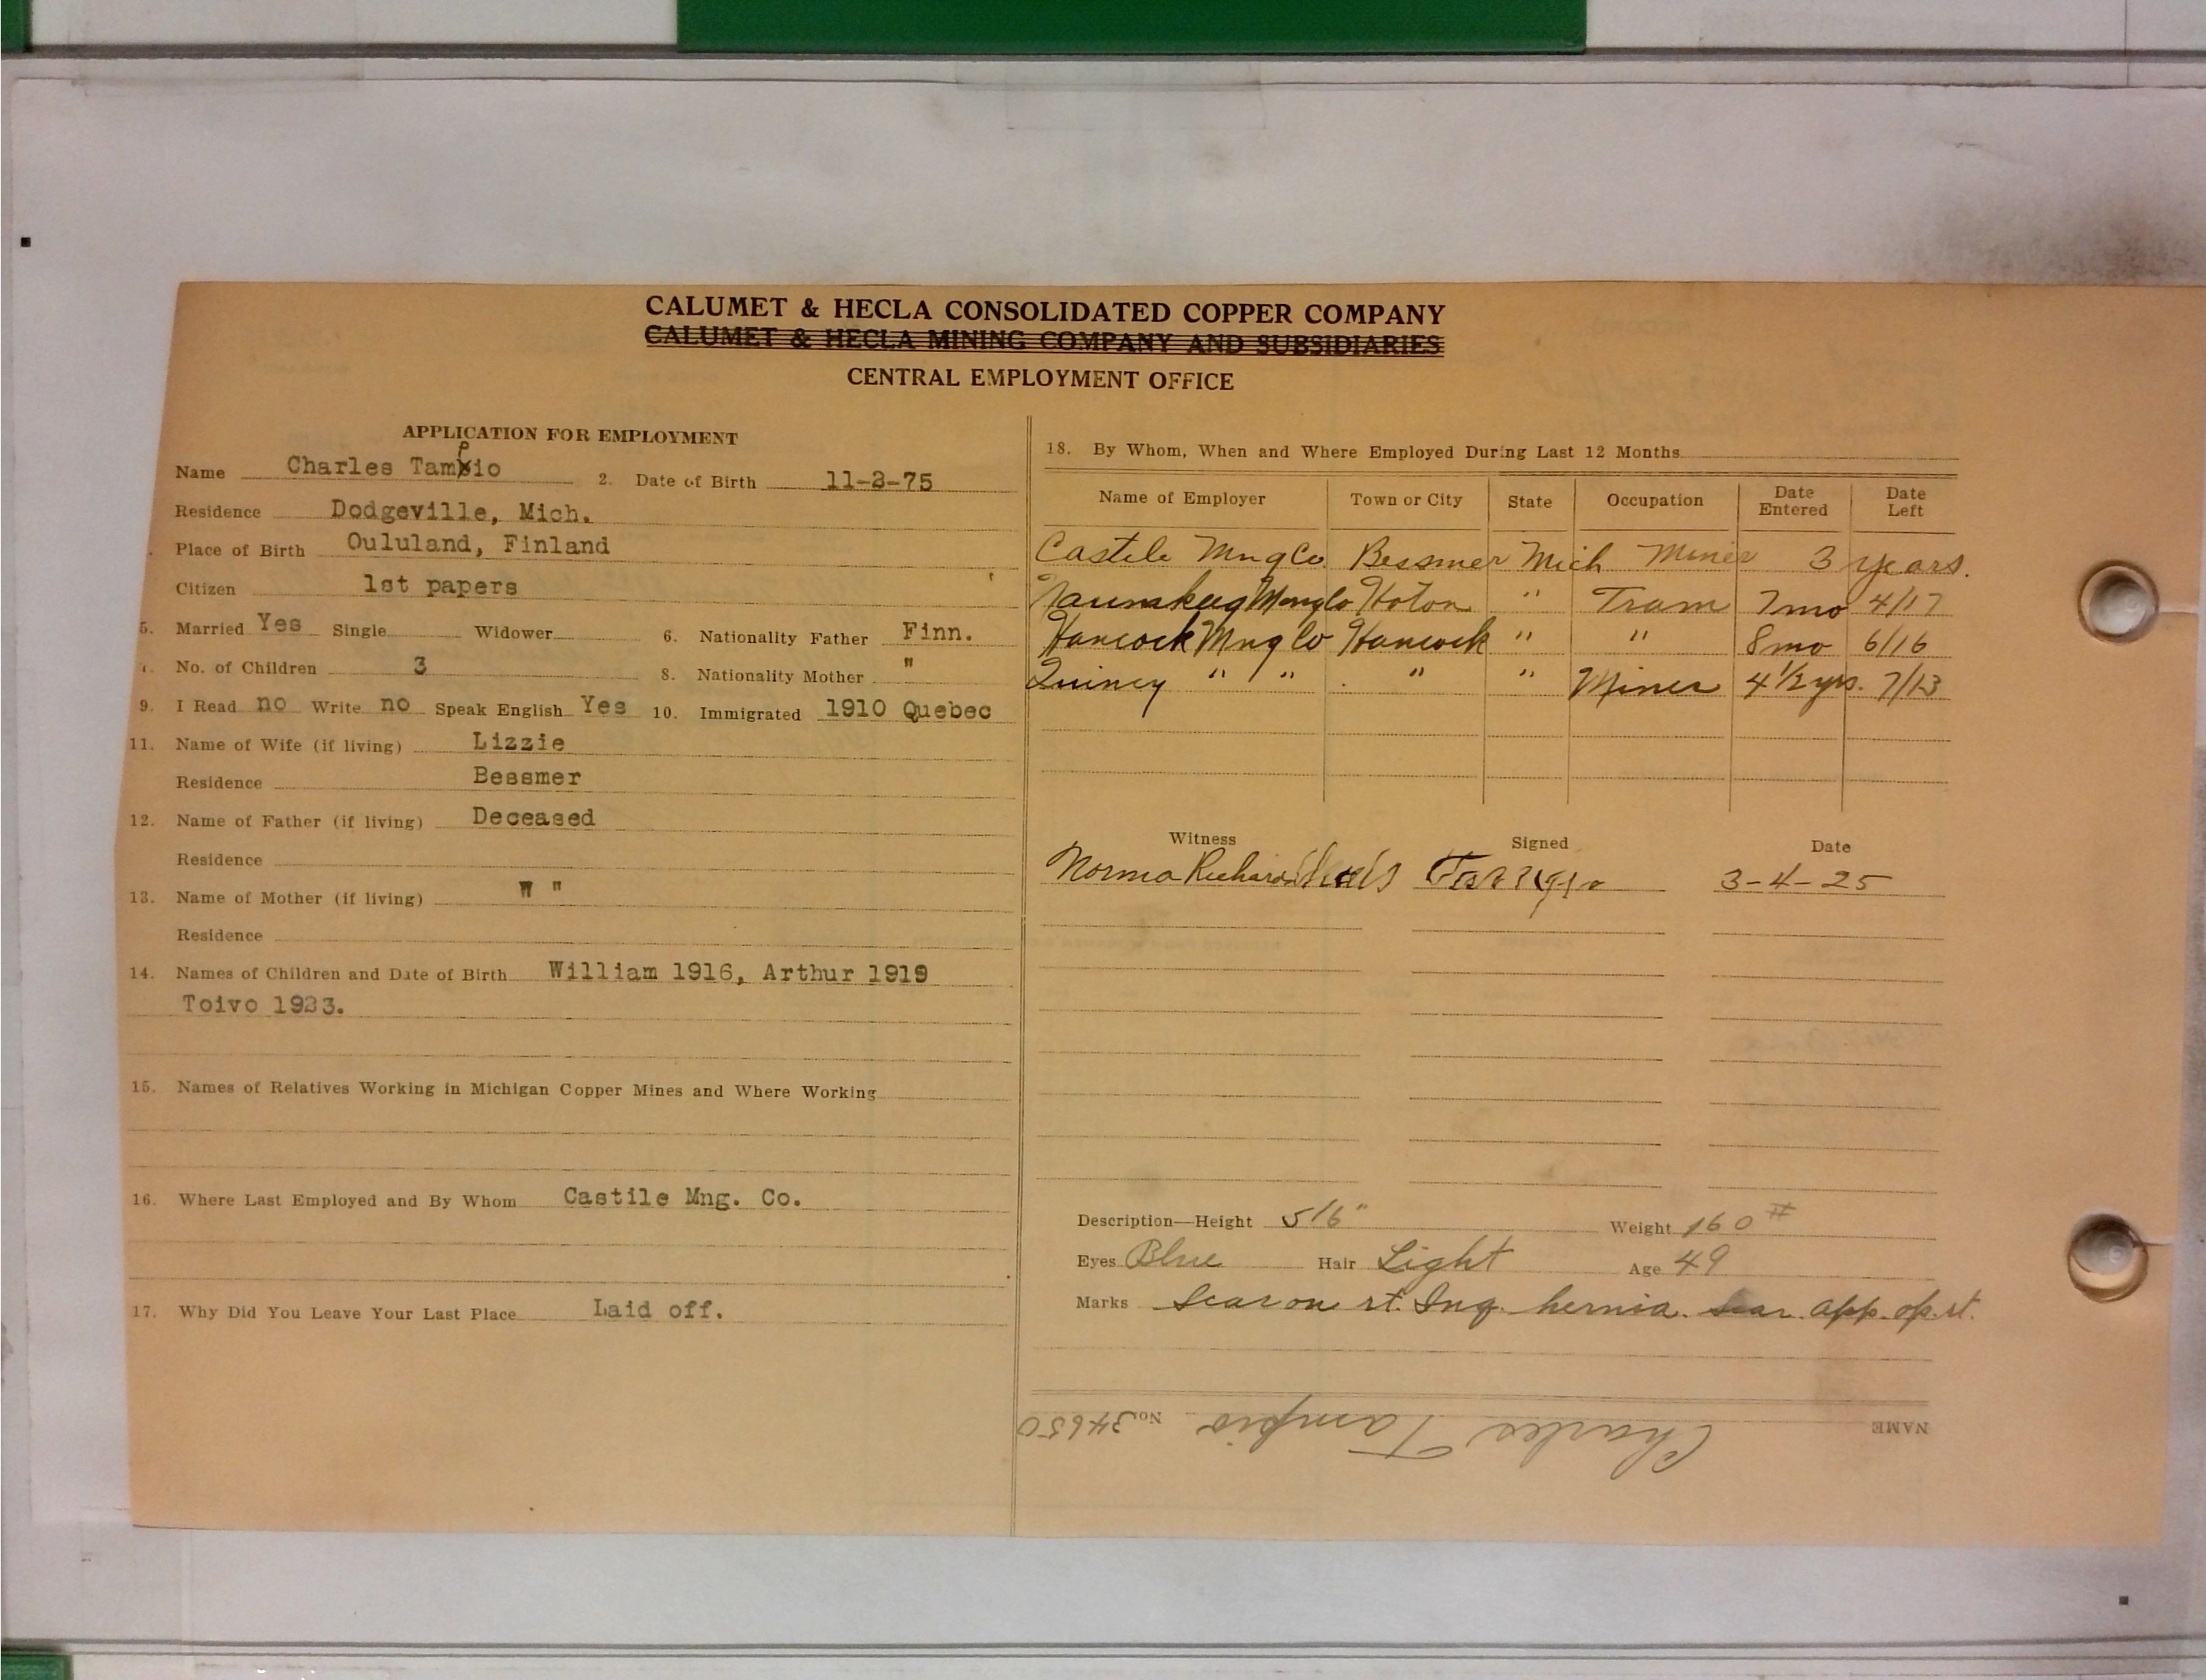 CALUMET & HECLA CONSOLIDATED COPPER COMPANY
CALUMET & HECLA MINING COMPANY AND SUBSIDIARIES
CENTRAL EMPLOYMENT OFFICE
APPLICATION FOR EMPLOYMENT
Name Charles Tampio 2. Date of Birth 11-2-75
Residence Dodgeville, Mich.
Place of Birth Oululand, Finland
Citizen 1st papers
5. Married Yes Single Widower 6. Nationality Father Finn.
No. of Children 3 8. Nationality Mother "
9. I Read no Write no Speak English Yes 10. Immigrated 1910 Quebec
11. Name of Wife (if living) Lizzie
Residence Bessmer
12. Name of Father (if living) Deceased
Residence
13. Name of Mother (if living) "
Residence
14. Names of Children and Date of Birth William 1916, Arthur 1919
Toivo 1923.
15. Names of Relatives Working in Michigan Copper Mines and Where Working
16. Where Last Employed and By Whom Castile Mng. Co.
17. Why Did You Leave Your Last Place Laid off.
18. By Whom, When and Where Employed During Last 12 Months
Name of Employer Town or City State Occupation Date Entered Date Left
Castile Mng Co Bessmer Mich Miner 3 years.
Naumkeag Mng Co Hoton " Tram 7 mo 4/17
Hancock Mng Co Hancock " " 8 mo 6/16
Quincy " " " " Miner 4 1/2 yrs. 7/13
Witness Signed Date
Norma Richards 3-4-25
Description—Height 5'6" Weight 160#
Eyes Blue Hair Light Age 49
Marks Scar on rt. Ing. hernia. Scar. app. op. rt.
NAME Charles Tampio No. 34650